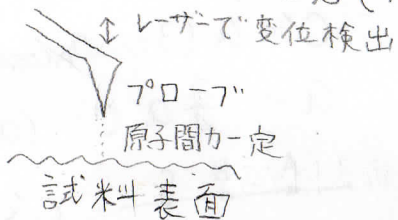 レーザーで変位検出
プローブ
原子間力一定
試料表面